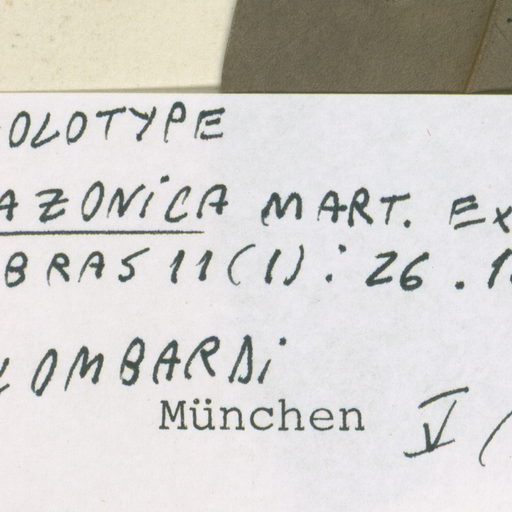 OLOTYPE
AZONICA MART. EX
BRAS 11(1): 26. 1
LOMBARDI
München V (